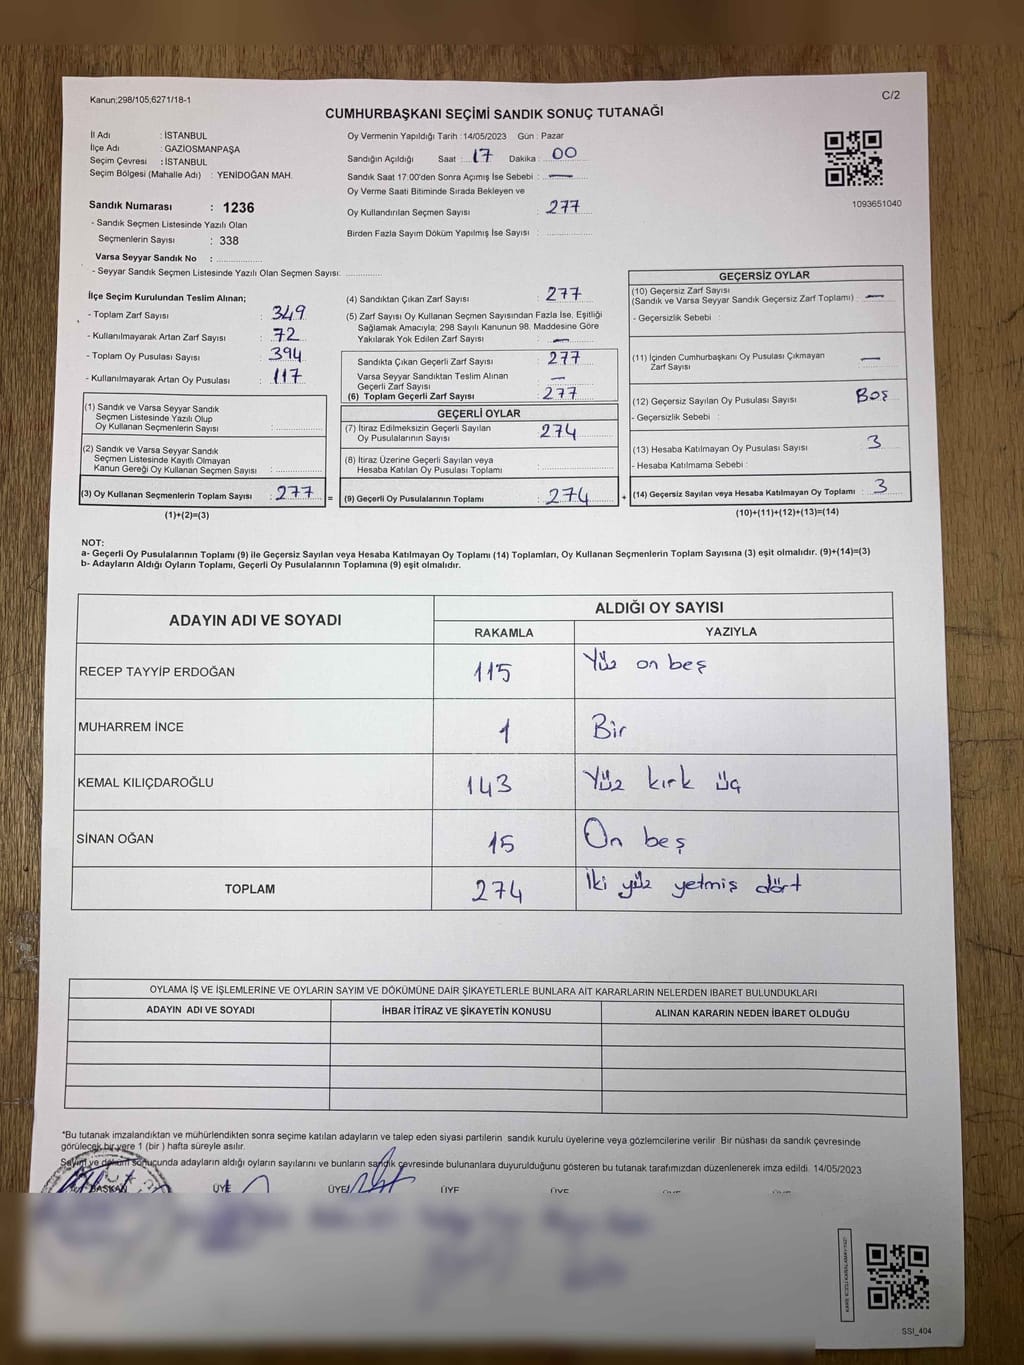 Kanun;298/105;6271/18-1
C/2
CUMHURBAŞKANI SEÇİMİ SANDIK SONUÇ TUTANAĞI
İl Adı : İSTANBUL
İlçe Adı : GAZİOSMANPAŞA
Seçim Çevresi : İSTANBUL
Seçim Bölgesi (Mahalle Adı) : YENİDOĞAN MAH.
Sandık Numarası : 1236
- Sandık Seçmen Listesinde Yazılı Olan
Seçmenlerin Sayısı : 338
Varsa Seyyar Sandık No :
- Seyyar Sandık Seçmen Listesinde Yazılı Olan Seçmen Sayısı:
Oy Vermenin Yapıldığı Tarih : 14/05/2023 Gün : Pazar
Sandığın Açıldığı Saat : 17 Dakika : 00
Sandık Saat 17:00'den Sonra Açımış İse Sebebi : —
Oy Verme Saati Bitiminde Sırada Bekleyen ve
Oy Kullandırılan Seçmen Sayısı : 277
Birden Fazla Sayım Döküm Yapılmış İse Sayısı :
1093651040
İlçe Seçim Kurulundan Teslim Alınan;
- Toplam Zarf Sayısı : 349
- Kullanılmayarak Artan Zarf Sayısı : 72
- Toplam Oy Pusulası Sayısı : 394
- Kullanılmayarak Artan Oy Pusulası : 117
(1) Sandık ve Varsa Seyyar Sandık
Seçmen Listesinde Yazılı Olup
Oy Kullanan Seçmenlerin Sayısı :
(2) Sandık ve Varsa Seyyar Sandık
Seçmen Listesinde Kayıtlı Olmayan
Kanun Gereği Oy Kullanan Seçmen Sayısı :
(3) Oy Kullanan Seçmenlerin Toplam Sayısı : 277
(1)+(2)=(3)
(4) Sandıktan Çıkan Zarf Sayısı : 277
(5) Zarf Sayısı Oy Kullanan Seçmen Sayısından Fazla İse, Eşitliği
Sağlamak Amacıyla; 298 Sayılı Kanunun 98. Maddesine Göre
Yakılarak Yok Edilen Zarf Sayısı : —
Sandıkta Çıkan Geçerli Zarf Sayısı : 277
Varsa Seyyar Sandıktan Teslim Alınan
Geçerli Zarf Sayısı : —
(6) Toplam Geçerli Zarf Sayısı : 277
GEÇERLİ OYLAR
(7) İtiraz Edilmeksizin Geçerli Sayılan
Oy Pusulalarının Sayısı : 274
(8) İtiraz Üzerine Geçerli Sayılan veya
Hesaba Katılan Oy Pusulası Toplamı :
= (9) Geçerli Oy Pusulalarının Toplamı : 274 +
GEÇERSİZ OYLAR
(10) Geçersiz Zarf Sayısı
(Sandık ve Varsa Seyyar Sandık Geçersiz Zarf Toplamı) : —
- Geçersizlik Sebebi :
(11) İçinden Cumhurbaşkanı Oy Pusulası Çıkmayan
Zarf Sayısı : —
(12) Geçersiz Sayılan Oy Pusulası Sayısı : Boş
- Geçersizlik Sebebi :
(13) Hesaba Katılmayan Oy Pusulası Sayısı : 3
- Hesaba Katılmama Sebebi :
(14) Geçersiz Sayılan veya Hesaba Katılmayan Oy Toplamı : 3
(10)+(11)+(12)+(13)=(14)
NOT:
a- Geçerli Oy Pusulalarının Toplamı (9) ile Geçersiz Sayılan veya Hesaba Katılmayan Oy Toplamı (14) Toplamları, Oy Kullanan Seçmenlerin Toplam Sayısına (3) eşit olmalıdır. (9)+(14)=(3)
b- Adayların Aldığı Oyların Toplamı, Geçerli Oy Pusulalarının Toplamına (9) eşit olmalıdır.
ADAYIN ADI VE SOYADI
ALDIĞI OY SAYISI
RAKAMLA YAZIYLA
RECEP TAYYİP ERDOĞAN 115 Yüz on beş
MUHARREM İNCE 1 Bir
KEMAL KILIÇDAROĞLU 143 Yüz kırk üç
SİNAN OĞAN 15 On beş
TOPLAM 274 İki yüz yetmiş dört
OYLAMA İŞ VE İŞLEMLERİNE VE OYLARIN SAYIM VE DÖKÜMÜNE DAİR ŞİKAYETLERLE BUNLARA AİT KARARLARIN NELERDEN İBARET BULUNDUKLARI
ADAYIN ADI VE SOYADI İHBAR İTİRAZ VE ŞİKAYETİN KONUSU ALINAN KARARIN NEDEN İBARET OLDUĞU
*Bu tutanak imzalandıktan ve mühürlendikten sonra seçime katılan adayların ve talep eden siyasi partilerin sandık kurulu üyelerine veya gözlemcilerine verilir. Bir nüshası da sandık çevresinde
görülecek bir yere 1 (bir) hafta süreyle asılır.
Sayım ve döküm sonucunda adayların aldığı oyların sayılarını ve bunların sandık çevresinde bulunanlara duyurulduğunu gösteren bu tutanak tarafımızdan düzenlenerek imza edildi. 14/05/2023
BAŞKAN ÜYE ÜYE ÜYE ÜYE
SSI_404